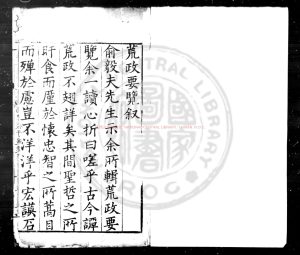 荒政要覽叙
俞毅夫先生示余所輯荒政要
覽余一讀心折曰嗟乎古今譚
荒政不翅詳矣其間聖哲之所
旰食而厪於懷忠智之所蒿目
而殫於慮豈不洋洋乎宏謨石